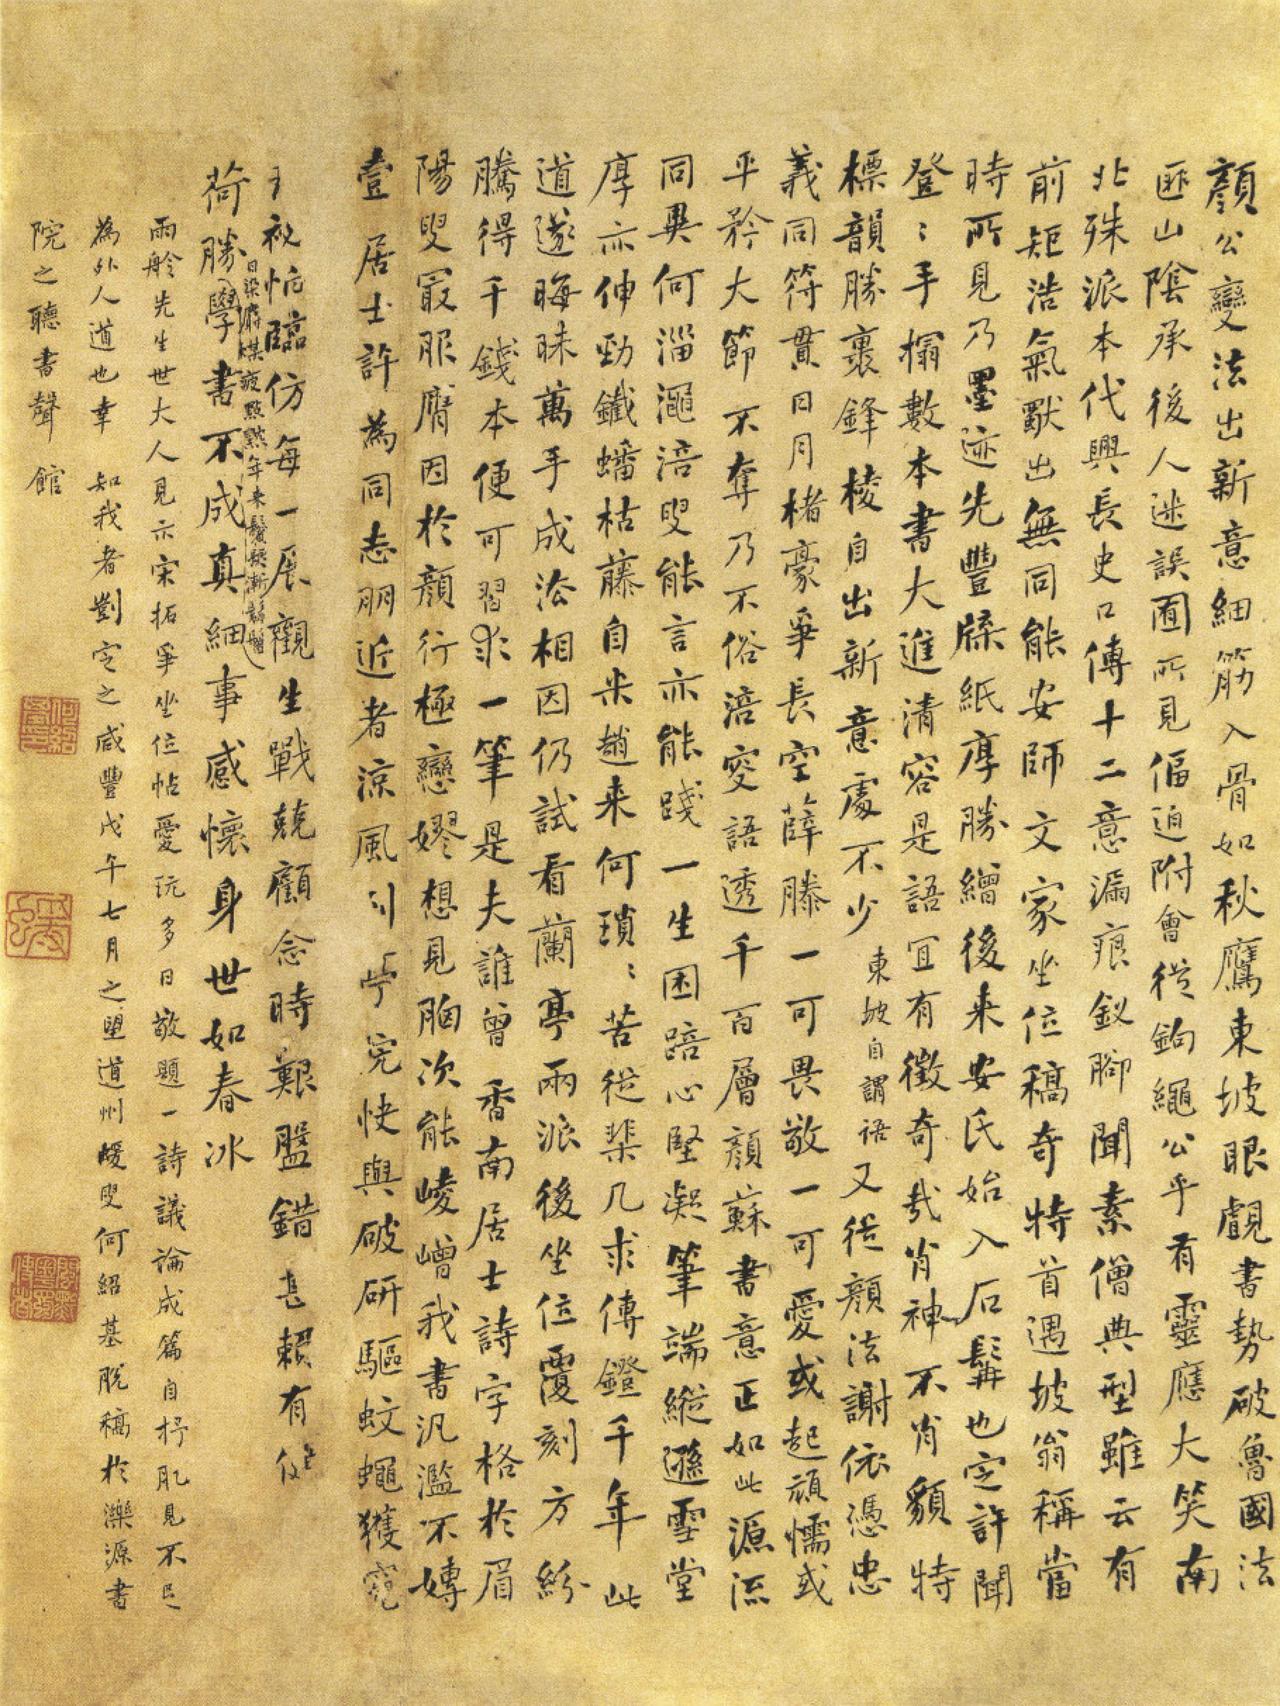 顏公變法出新意細筋入骨如秋鷹東坡眼覷書勢破魯國法
匪山陰承後人迷誤囿所見偪迫附會從鉤繩公乎有靈應大笑南
北殊派本代興長史口傳十二意漏痕釵腳聞素僧典型雖云有
前矩浩氣猒出無同能安師文家坐位稿奇特首遇坡翁稱當
時所見乃墨迹先豐牋紙厚勝繒後來安氏始入石髯也定許聞
登〻手搨數本書大進清容是語宜有徵奇哉肖神不肖貌特
標韻勝裹鋒棱自出新意處不少東坡自謂語又從顏法謝依憑忠
義同符貫日月楮豪爭長空薜滕一可畏敬一可愛或起頑懦或
平矜大節不奪乃不俗涪叟語透千百層顏蘇書意正如此源流
同異何淄澠涪叟能言亦能踐一生困踣心堅凝筆端縱遜雪堂
厚亦伸勁鐵蟠枯藤自米趙來何瑣〻苦從棐几求傳鐙千年此
道遂晦昧萬手成法相因仍試看蘭亭兩派後坐位覆刻方紛
騰得千錢本便可習求一筆是夫誰曾香南居士詩字格於眉
陽叟最服膺因於顏行極戀嫪想見胸次能崚嶒我書汎濫不專
壹居士許為同志朋近者涼風到亭完快與破研驅蚊蠅獲窺
臨仿每一展觀生戰兢顧念時艱盤錯甚賴有
日染麝煤疲點黕年來鬢髮漸鬅鬙
荷勝學書不成真細事感懷身世如春冰
雨舲先生世大人見示宋拓爭坐位帖愛玩多日敬題一詩議論成篇自抒肊見不足
為外人道也幸知我者劉定之咸豐戊午七月之望道州蝯叟何紹基脫稿於濼源書
院之聽書聲館